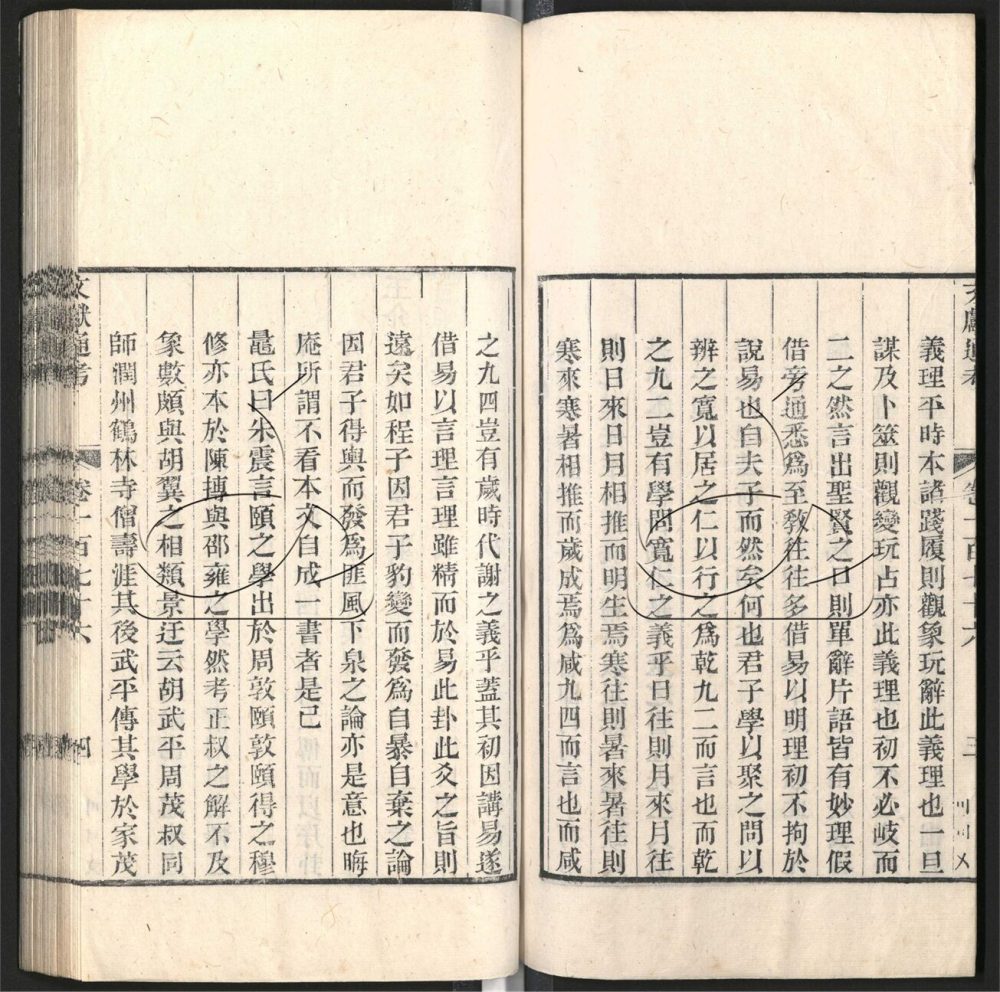 文獻通考 卷一百七十六 三
義理平時本諸踐履則觀象玩辭此義理也一旦
謀及卜筮則觀變玩占亦此義理也初不必岐而
二之然言出聖賢之口則單辭片語皆有妙理假
借旁通悉爲至敎往往多借易以明理初不拘於
說易也自夫子而然矣何也君子學以聚之問以
辨之寬以居之仁以行之爲乾九二而言也而乾
之九二豈有學問寬仁之義乎日往則月來月往
則日來日月相推而明生焉寒往則暑來暑往則
寒來寒暑相推而歲成焉爲咸九四而言也而咸
之九四豈有歲時代謝之義乎蓋其初因講易遂
借易以言理言理雖精而於易此卦此爻之旨則
遠矣如程子因君子豹變而發爲自暴自棄之論
因君子得輿而發爲匪風下泉之論亦是意也晦
庵所謂不看本文自成一書者是已
鼂氏曰朱震言頤之學出於周敦頤敦頤得之穆
修亦本於陳摶與邵雍之學然考正叔之解不及
象數頗與胡翼之相類景迂云胡武平周茂叔同
師潤州鶴林寺僧壽涯其後武平傳其學於家茂
文獻通考 卷一百七十六 四